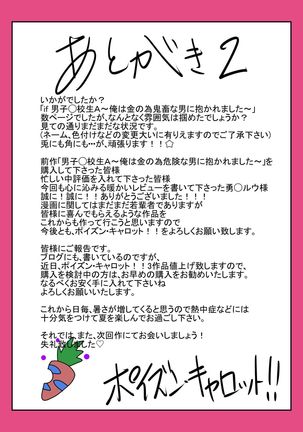 あとがき2
いかがでしたか？
「if 男子◯校生A～俺は金の為鬼畜な男に抱かれました～」
数ページでしたが、なんとなく雰囲気は掴めたでしょうか？
見ての通りまだまだな状況です。
(ネーム、色付けなどの変更大いに有りえますのでご了承下さい)
兎にも角にも…が、頑張ります！！☆
前作「男子◯校生A～俺は金の為危険な男に抱かれました～」を
購入して下さった皆様
忙しい中評価を入れて下さった皆様
今回も心に沁みる暖かいレビューを書いて下さった勇◯ルウ様
誠に！誠に！！ありがとうございました！！！
漫画に関してはまだまだ若輩者でありますが
皆様に喜んでもらえるような作品を
これからも作って行こうと思いますので
今後とも、ポイズン・キャロット！！をよろしくお願い致します。
皆様にご報告です。
ブログにも、書いているのですが、
近日、ポイズン・キャロット！！3作品値上げ致しますので、
購入を検討中の方は、お早めの購入をお勧めいたします。
なるべくお安く手に入れて下さいね
よろしくお願いいたします。
これから日毎、暑さが増してくると思うので熱中症などには
十分気をつけて夏を楽しんでお過ごし下さい。
それでは、また、次回作にてお会いしましょう！
失礼致しました♡
ポイズンキャロット!!